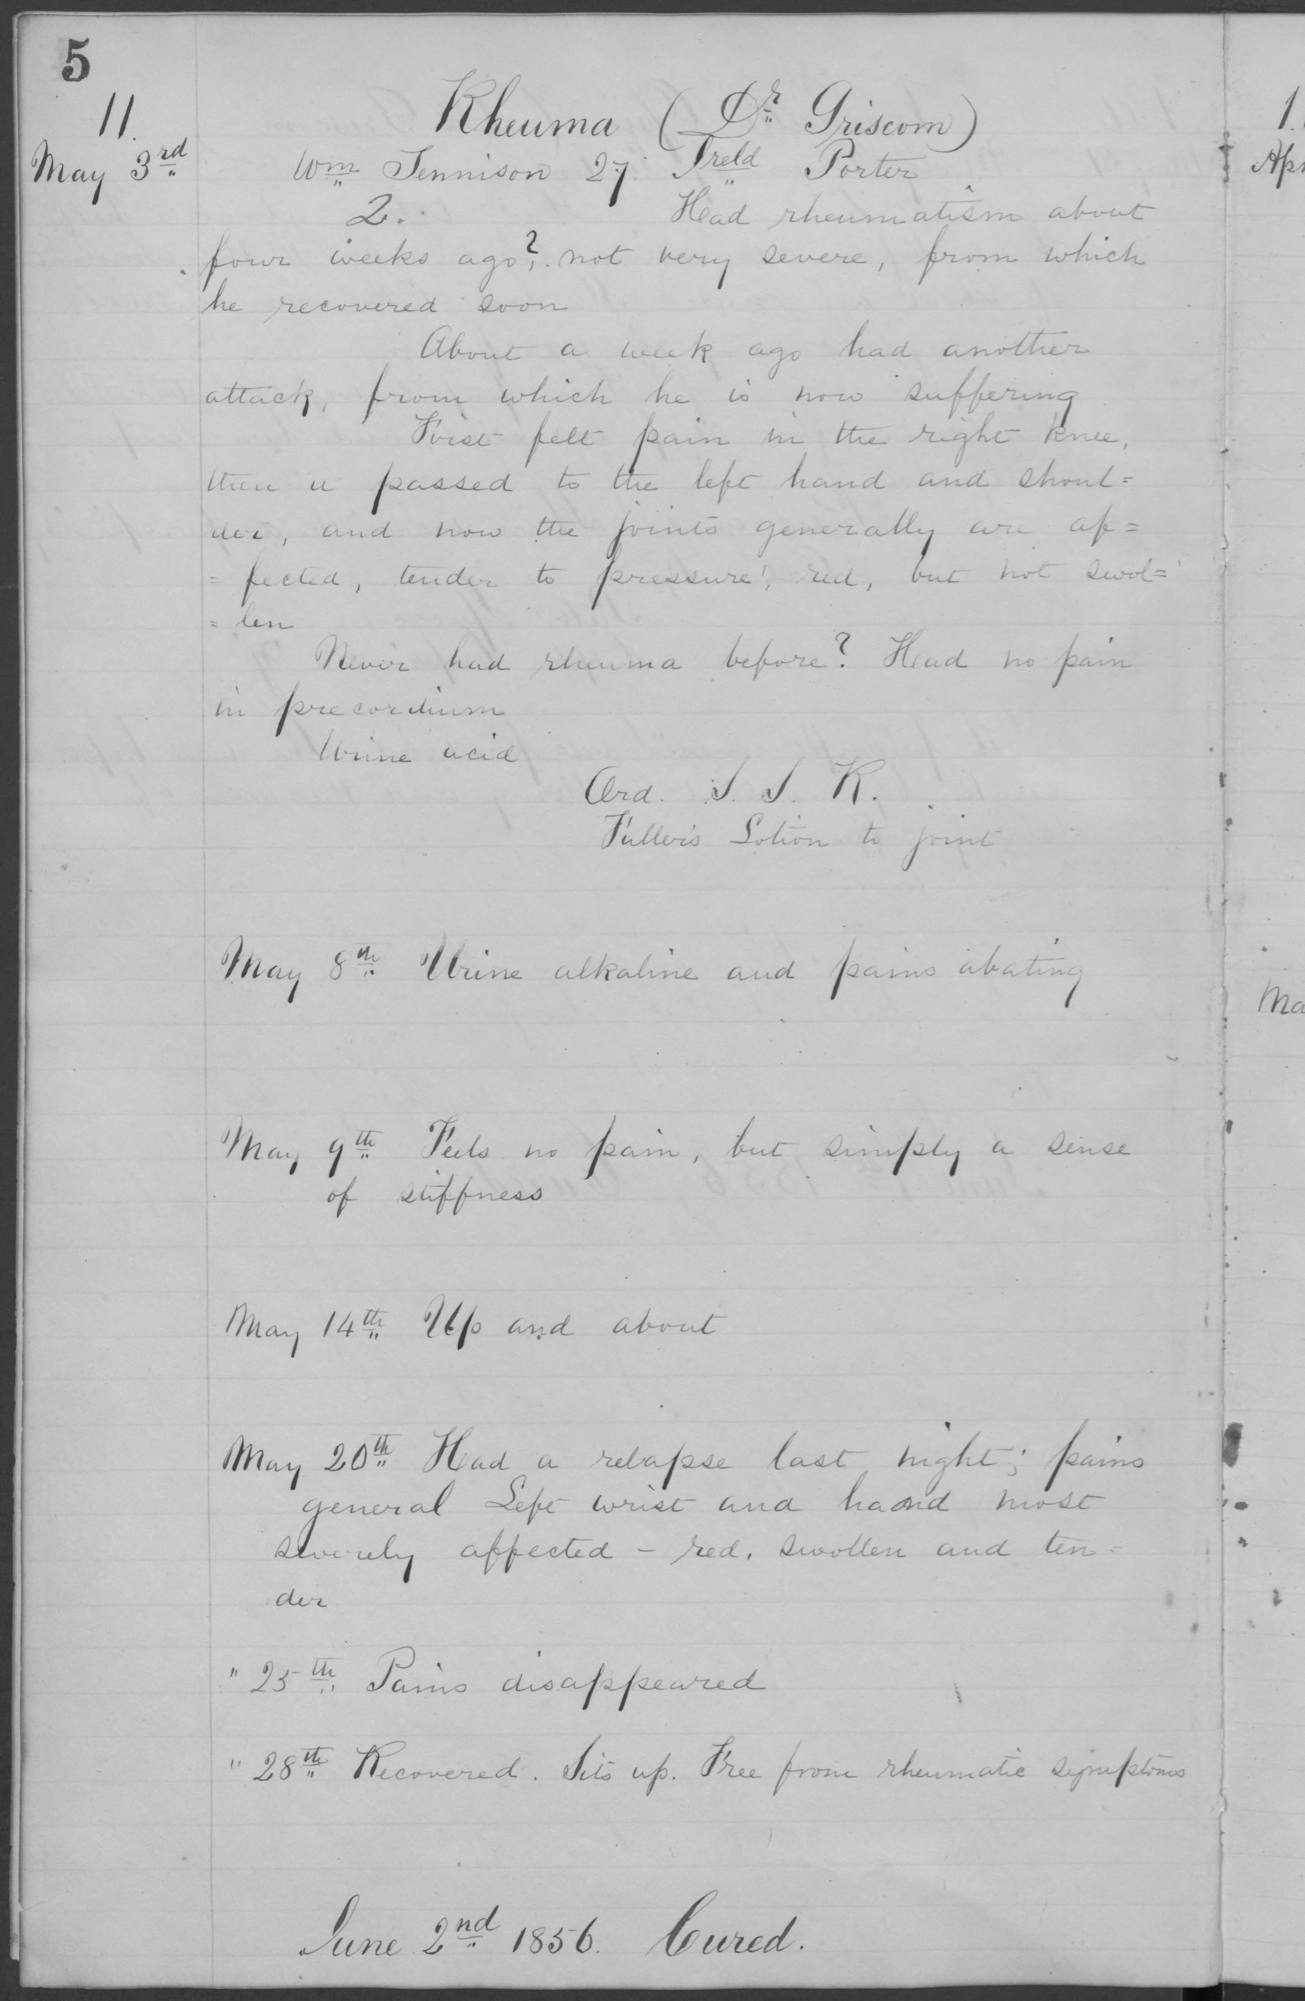 5
11.
Rheuma (Dr Griscom)
May 3rd
Wm Tennison 27. Ireld Porter
2. Had rheumatism about
four weeks ago?, not very severe, from which
he recovered soon
About a week ago had another
attack, from which he is now suffering
First felt pain in the right knee,
then it passed to the left hand and shoul=
der, and now the joints generally are af=
=fected, tender to pressure, red, but not swol=
=len
Never had rheuma before? Had no pain
in precordium
Urine acid
Ord. S. S. R.
Fuller's Lotion to joint
May 8th Urine alkaline and pains abating
May 9th Feels no pain, but simply a sense
of stiffness
May 14th Up and about
May 20th Had a relapse last night; pains
general Left wrist and hand most
severely affected - red, swollen and ten=
der
" 25th Pains disappeared
" 28th Recovered. Sits up. Free from rheumatic symptoms
June 2nd 1856. Cured.